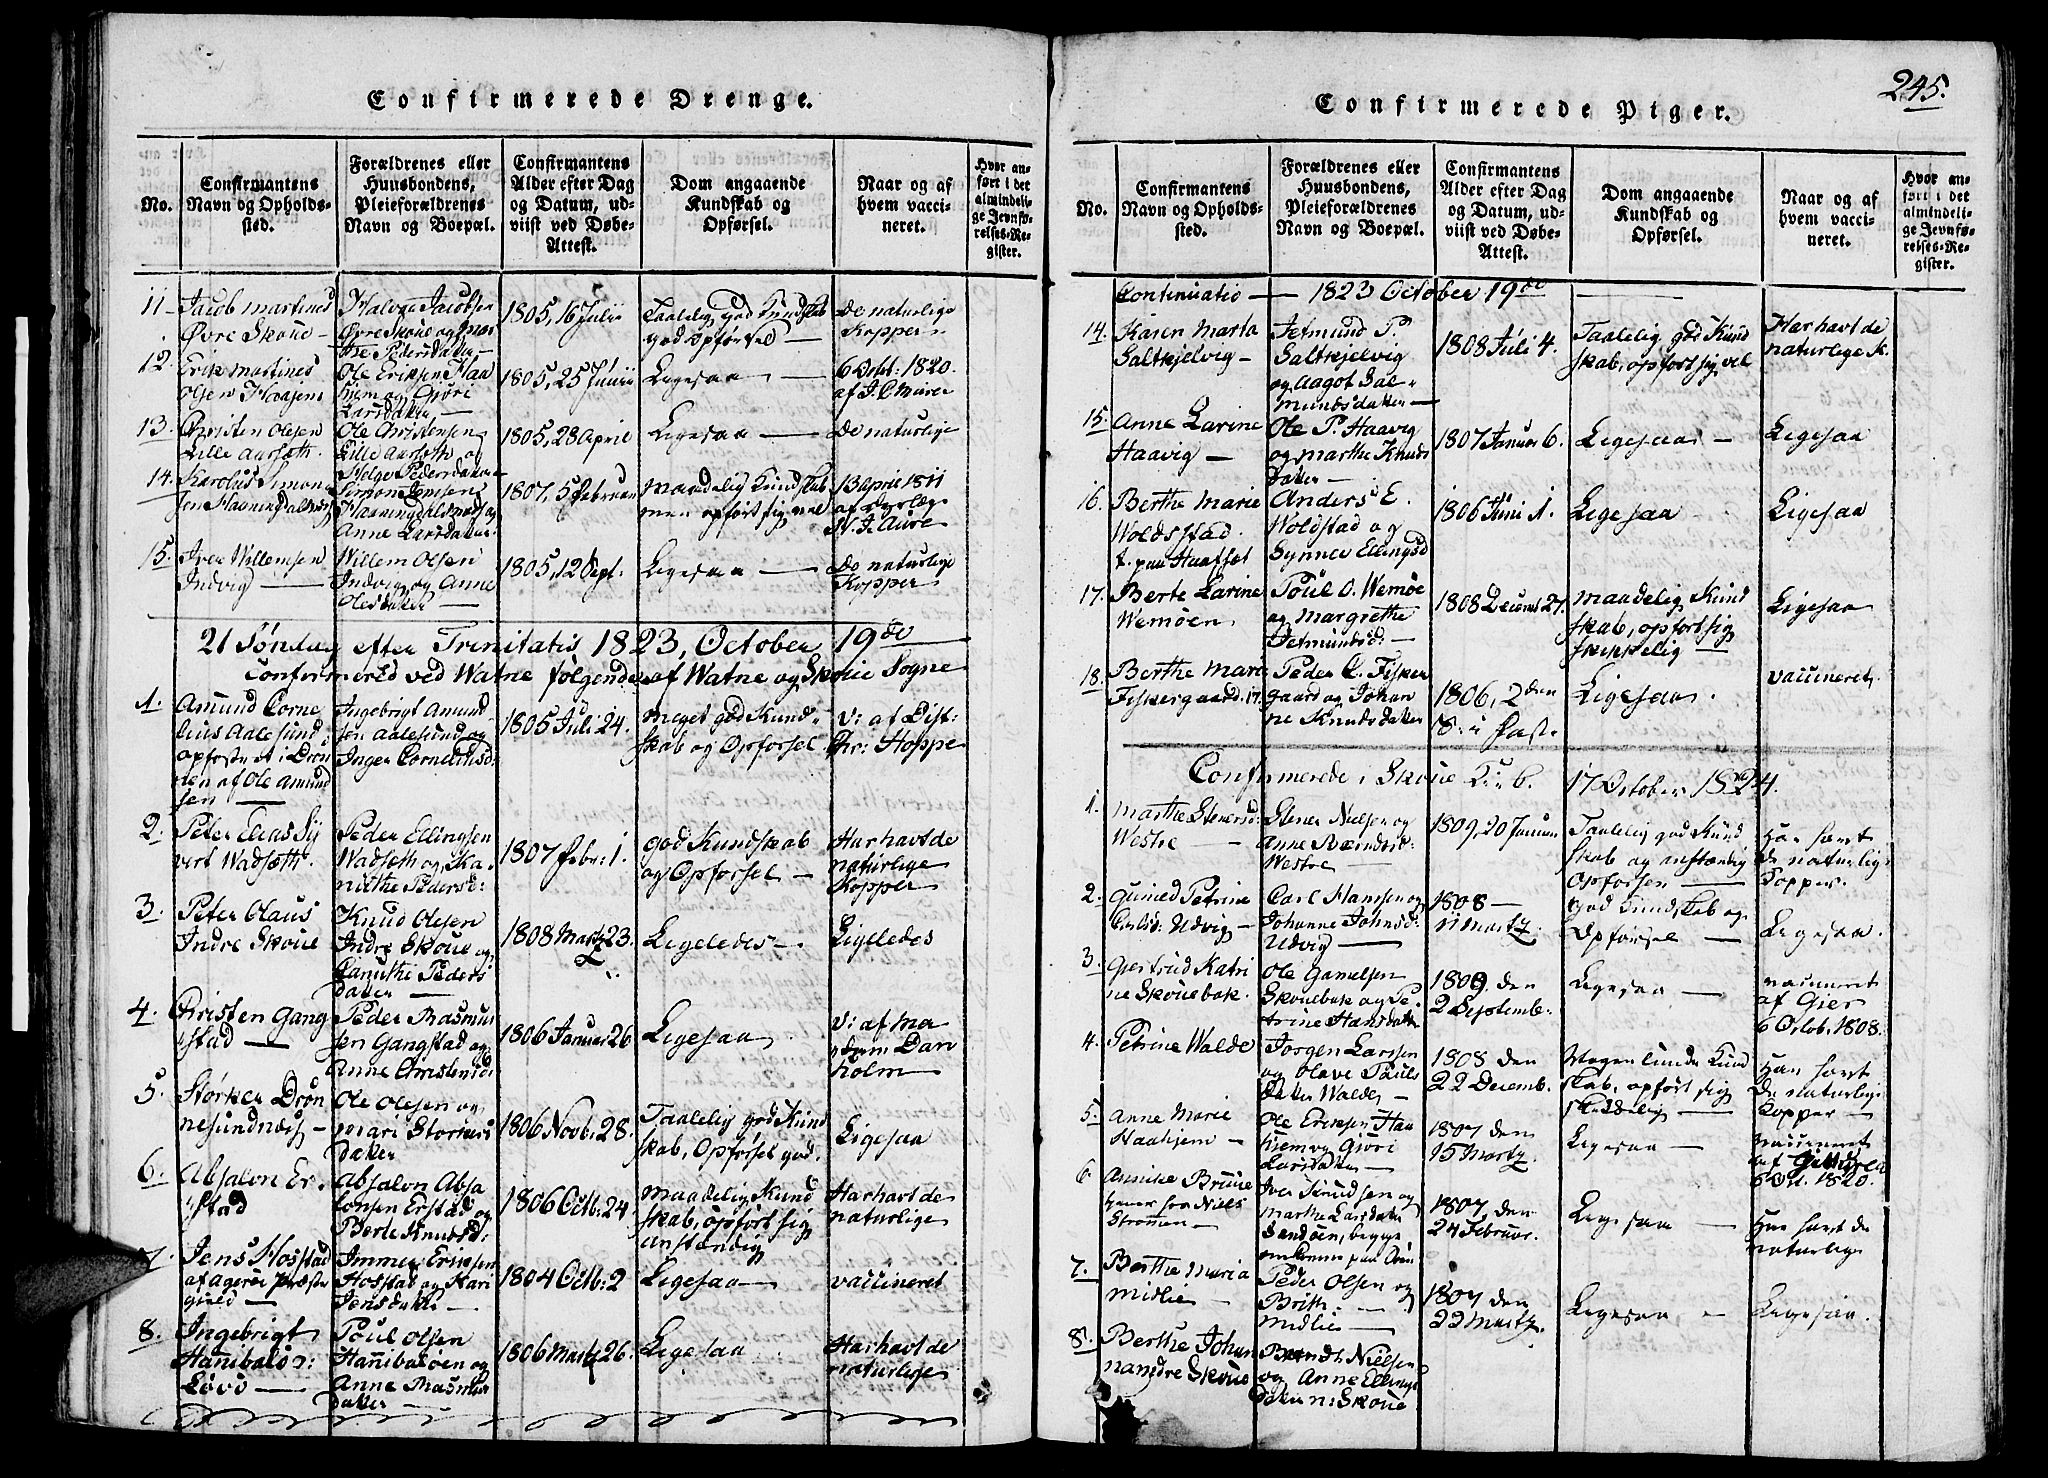 Confirmerede Drenge.
No.
Confirmantens Navn og Opholdssted.
Forældrenes eller Huusbondens, Pleieforældrenes Navn og Boepæl.
Confirmantens Alder efter Dag og Datum, udviist ved Døbe-Attest.
Dom angaaende Kundskab og Opførsel.
Naar og af hvem vaccineret.
Hvor anført i det almindelige Jevnførelses-Register.
11. Jacob Martinus Øvre Skoue — Halvor Jacobsen Øvre Skoue og Marthe Pedersdatter 1805, 16 Julii Taalelig god Kundskab god Opførsel — De naturlige Kopper
12. Erik Martines Olsen Haajem Ole Eriksen Haahiem og Giøri Larsdatter — 1805, 25 Junii Ligesaa — 6 Octb: 1820. af
13. Christen Olesen Lille Aarsæth. Ole Christensen Lille Aarsæth og Helge Pedersdatter 1805, 28 April Ligesaa — De naturlige
14. Karolus Simonsen Simon Jensen og Anne Larsdatter. 1807, 5 Februar Maadelig Kundskab men opført sig vel 13 April 1811 af N. J. Aure
15. Iver Willemsen Indvig — Willem Olsen Indvig og Anne Olesdatter — 1805, 12 Sept. Ligesaa — De naturlige Kopper
21 Søndag efter Trinitatis 1823, October 19de
Confirmered ved Watne følgende af Watne og Skoue Sogne
1. Amund Cornelius Aalesund, opfostret i Drønen af Ole Amundsen — Ingebrigt Amundsen Aalesund og Inger Corneliusd: 1805 Juli 24. Meget god Kundskab og Opførsel v: af Dist: Chr: Hoppe
2. Peter Elias Syvert Wadsæth. Peder Ellingsen Wadsæth og Kanuthe Pedersd: 1807 Febr: 1. god Kundskab og Opførsel — Har havt de naturlige Kopper
3. Peter Olaus Indre Skoue Knud Olesen Indre Skoue og Canuthe Pedersdatter — 1808 Martz 23. Ligeledes — Ligeledes
4. Christen Gangstad — Peder Rasmussen Gangstad og Anne Christensd: 1806 Januar 26 Ligesaa v: af Madam Danholm
5. Størker Drønesundnæs — Ole Olesen og Mari Størkersdatter 1806 Novb: 28. Taalelig god Kundskab, Opførsel god. Ligesaa
6. Absalon Erstad Absalon Absalonsen Erstad og Berte Knudsd: 1806 Octb: 24. Maadelig Kundskab, opført sig anstændig Har havt de naturlige
7. Jens Hostad af Agerøe Præstegield — Immer Eriksen Hostad og Kari Jensdatter — 1804 Octb: 2 Ligesaa — vaccineret
8. Ingebrigt Hannibalsø: Løvø — Poul Olsen Hannibaløen og Anne Rasmusdatter — 1806 Martz 26. Ligesaa Har havt de naturlige
245.
Confirmerede Piger.
No.
Confirmantens Navn og Opholdssted.
Forældrenes eller Huusbondens, Pleieforældrenes Navn og Boepæl.
Confirmantens Alder efter Dag og Datum, udviist ved Døbe-Attest.
Dom angaaende Kundskab og Opførsel.
Naar og af hvem vaccineret.
Hvor anført i det almindelige Jevnførelses-Register.
Continuatio — 1823 October 19de —
14. Karen Marta Saltkjelvig — Jetmund P. Saltkjelvig og Aagot Salmundsdatter — 1808 Juli 4. Taalelig god Kundskab, opført sig vel Har havt de naturlige K.
15. Anne Larine Haavig — Ole P. Haavig og Marthe Knudsdatter — 1807 Januar 6. Ligesaa — Ligesaa
16. Berthe Marie Woldsstad t. paa Haafset Anders E. Woldstad og Synnev Ellingsd 1806 Juni 1. Ligesaa Ligesaa
17. Berte Larine Wemøen. Poul O. Wemøe og Margrethe Jetmundsd: — 1808 Decemb 27. Maadelig Kundskab, opført sig skikkelig Ligesaa
18. Berthe Mare Fiskergaard. 17. Peder C. Fiskergaard og Johanne Knudsdatter 1806, 2den S. i Fast. Ligesaa. vaccineret.
Confirmerede i Skoue 17 October 1824.
1. Marthe Stenersd: Westre — Stener Nielsen og Anne Berndtsd: Westre — 1809, 20 Januar Taalelig god Kundskab og anstændig Opførsen — Har havt De naturlige Kopper.
2. Gunild Petrine Carlsd: Udvig — Carl Hansen og Johanne Johnsd: Udvig — 1808 — 11 Martz. God Kundskab og Opførsel — Ligesaa.
3. Gertrud Katrine Skouebak. Ole Gamelsen Skouebak og Petrine Hansdatter 1809. den 2 Septemb. Ligesaa — vaccineret af Gier 6 Octob. 1808.
4. Petrine Walde Jørgen Larssen og Olave Poulsdatter Walde — 1808 den 22 Decemb. Megen liden Kundskab, opført sig skikkelig — Har havt De naturlige Kopper —
5. Anne Marie Haahjem — Ole Eriksen Haahiem og Giøri Larsdatter — 1807 den 15 Martz. Ligesaa — Vaccineret af 6 Oct. 1820.
6 Annike Brune hører fra Niels Strømen — Iver Knudsen og Marthe Larsdatter Sandøen, begge 1807, den 24 Februar. Ligesaa — Har havt de naturlige
7. Berthe Maria Midlie — Peder Olsen og Brith: — Midlie — 1807 den 22 Martz. Ligesaa — Ligesaa.
8. Berthe Johannandre Skoue Berndt Nielsen og Anne Ellingsdatter n: Skoue.